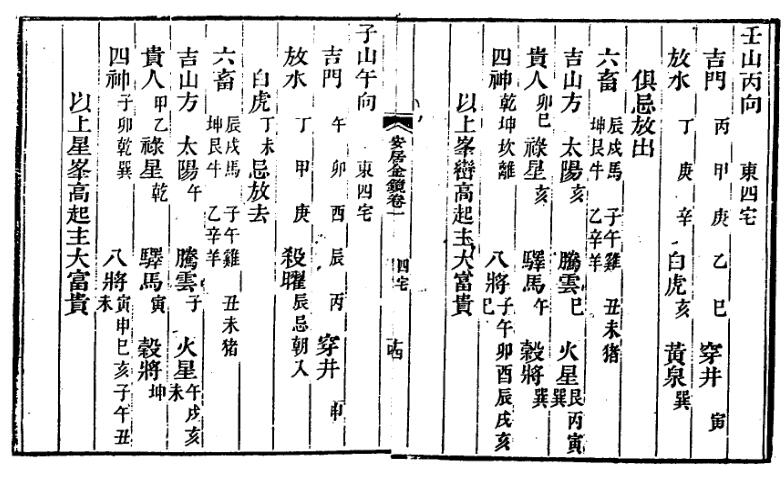 壬山丙向　東四宅
吉門　丙　甲　庚　乙　巳　穿井　寅
放水　丁　庚　辛　白虎亥　黃泉巽
俱忌放出
六畜　辰戌馬　子午雞　丑未猪　坤艮牛　乙辛羊
吉山方　太陽亥　騰雲巳　火星艮丙寅巽
貴人卯巳　祿星亥　驛馬午　穀將巽
四神乾坤坎離　八將子午卯酉辰戌亥巳
以上峯巒高起主大富貴
安居金鏡卷一　四宅　十四
子山午向　東四宅
吉門　午　卯　酉　辰　丙　穿井　申
放水　丁　甲　庚　殺曜辰忌朝入
白虎丁未忌放去
六畜　辰戌馬　子午雞　丑未猪　坤艮牛　乙辛羊
吉山方　太陽午　騰雲子　火星午戌亥未
貴人甲乙　祿星乾　驛馬寅　穀將坤
四神子卯乾巽　八將寅申巳亥子午丑未
以上星峯高起主大富貴